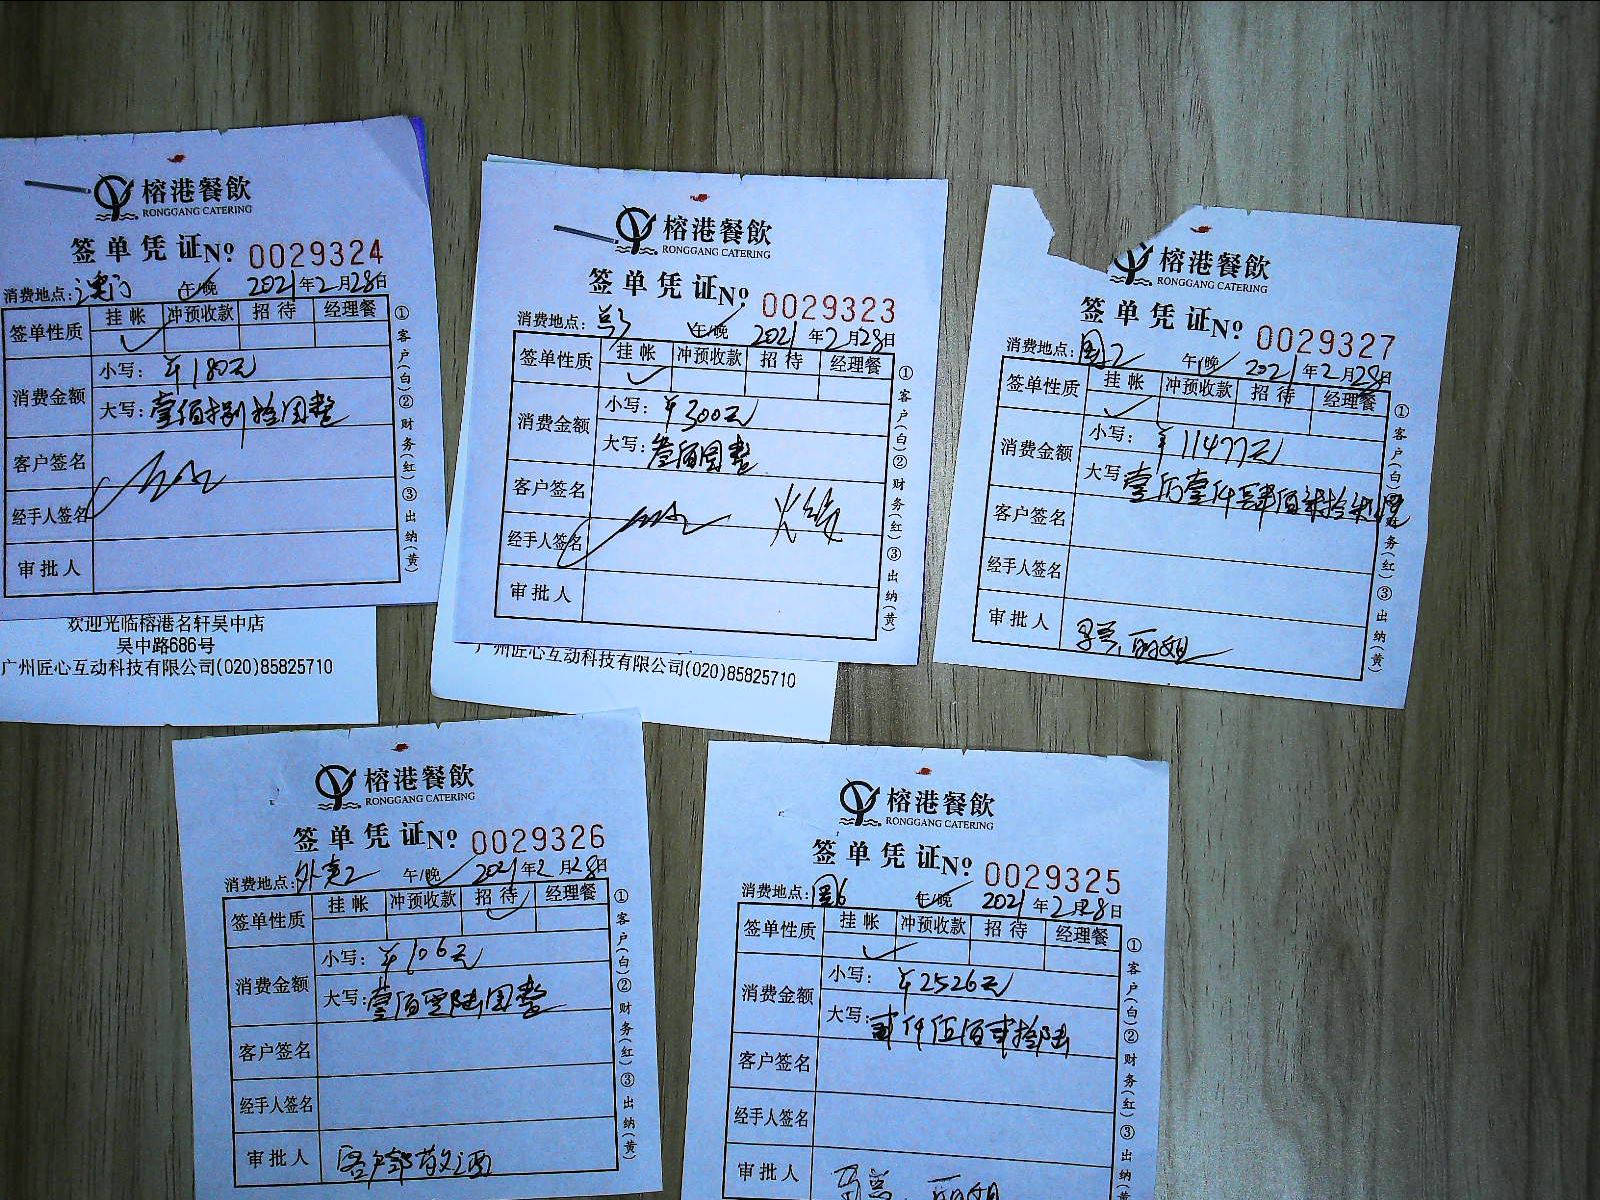 榕港餐飲
RONGGANG CATERING
签单凭证No 0029324
消费地点: 午/晚 2021年2月28日
签单性质 挂帐 冲预收款 招待 经理餐
消费金额 小写: ¥180元
大写: 壹佰捌拾圆整
客户签名
经手人签名
审批人
①客户(白)②财务(红)③出纳(黄)
欢迎光临榕港名轩吴中店
吴中路686号
广州匠心互动科技有限公司(020)85825710
榕港餐飲
RONGGANG CATERING
签单凭证No 0029323
消费地点: 午/晚 2021年2月28日
签单性质 挂帐 冲预收款 招待 经理餐
消费金额 小写: ¥300元
大写: 叁佰圆整
客户签名
经手人签名
审批人
①客户(白)②财务(红)③出纳(黄)
广州匠心互动科技有限公司(020)85825710
榕港餐飲
RONGGANG CATERING
签单凭证No 0029327
消费地点: 国2 午/晚 2021年2月28日
签单性质 挂帐 冲预收款 招待 经理餐
消费金额 小写: ¥11477元
大写 壹万壹仟肆佰柒拾柒圆
客户签名
经手人签名
审批人
①客户(白)②财务(红)③出纳(黄)
榕港餐飲
RONGGANG CATERING
签单凭证No 0029326
消费地点: 外卖2 午/晚 2021年2月28日
签单性质 挂帐 冲预收款 招待 经理餐
消费金额 小写: ¥106元
大写: 壹佰零陆圆整
客户签名
经手人签名
审批人 客户部敬酒
①客户(白)②财务(红)③出纳(黄)
榕港餐飲
RONGGANG CATERING
签单凭证No 0029325
消费地点: 国6 午/晚 2021年2月28日
签单性质 挂帐 冲预收款 招待 经理餐
消费金额 小写: ¥2526元
大写: 贰仟伍佰贰拾陆
客户签名
经手人签名
审批人
①客户(白)②财务(红)③出纳(黄)